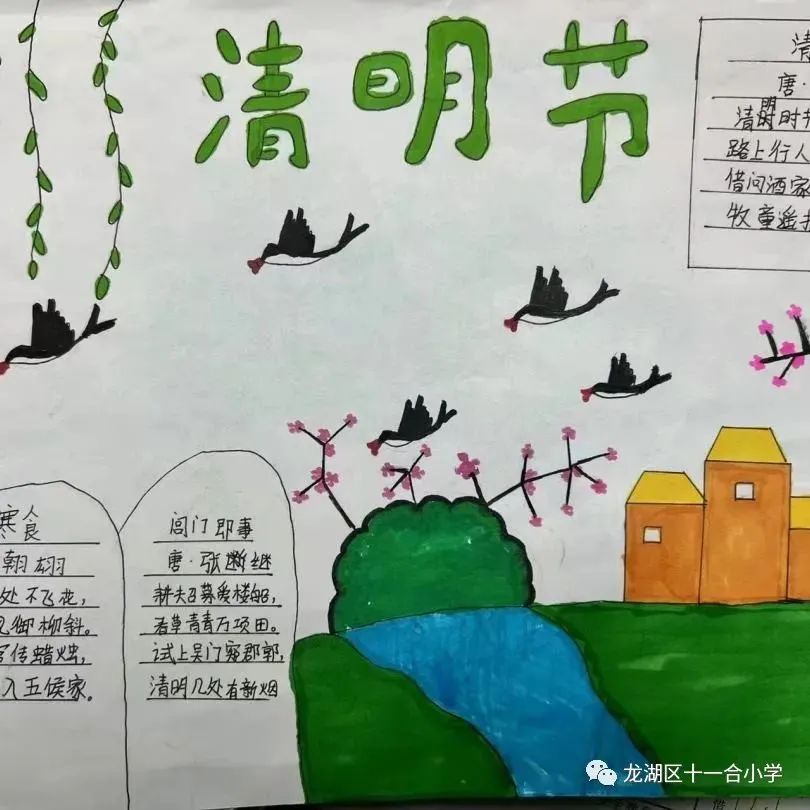 清明节
清
唐·
清明时节
路上行人
借问酒家
牧童遥指
寒食
翃
处不飞花，
御柳斜。
宫传蜡烛，
入五侯家。
阊门即事
唐·张断继
耕夫召募爱楼船，
春草青青万项田。
试上吴门窥郡郭，
清明几处有新烟
龙湖区十一合小学